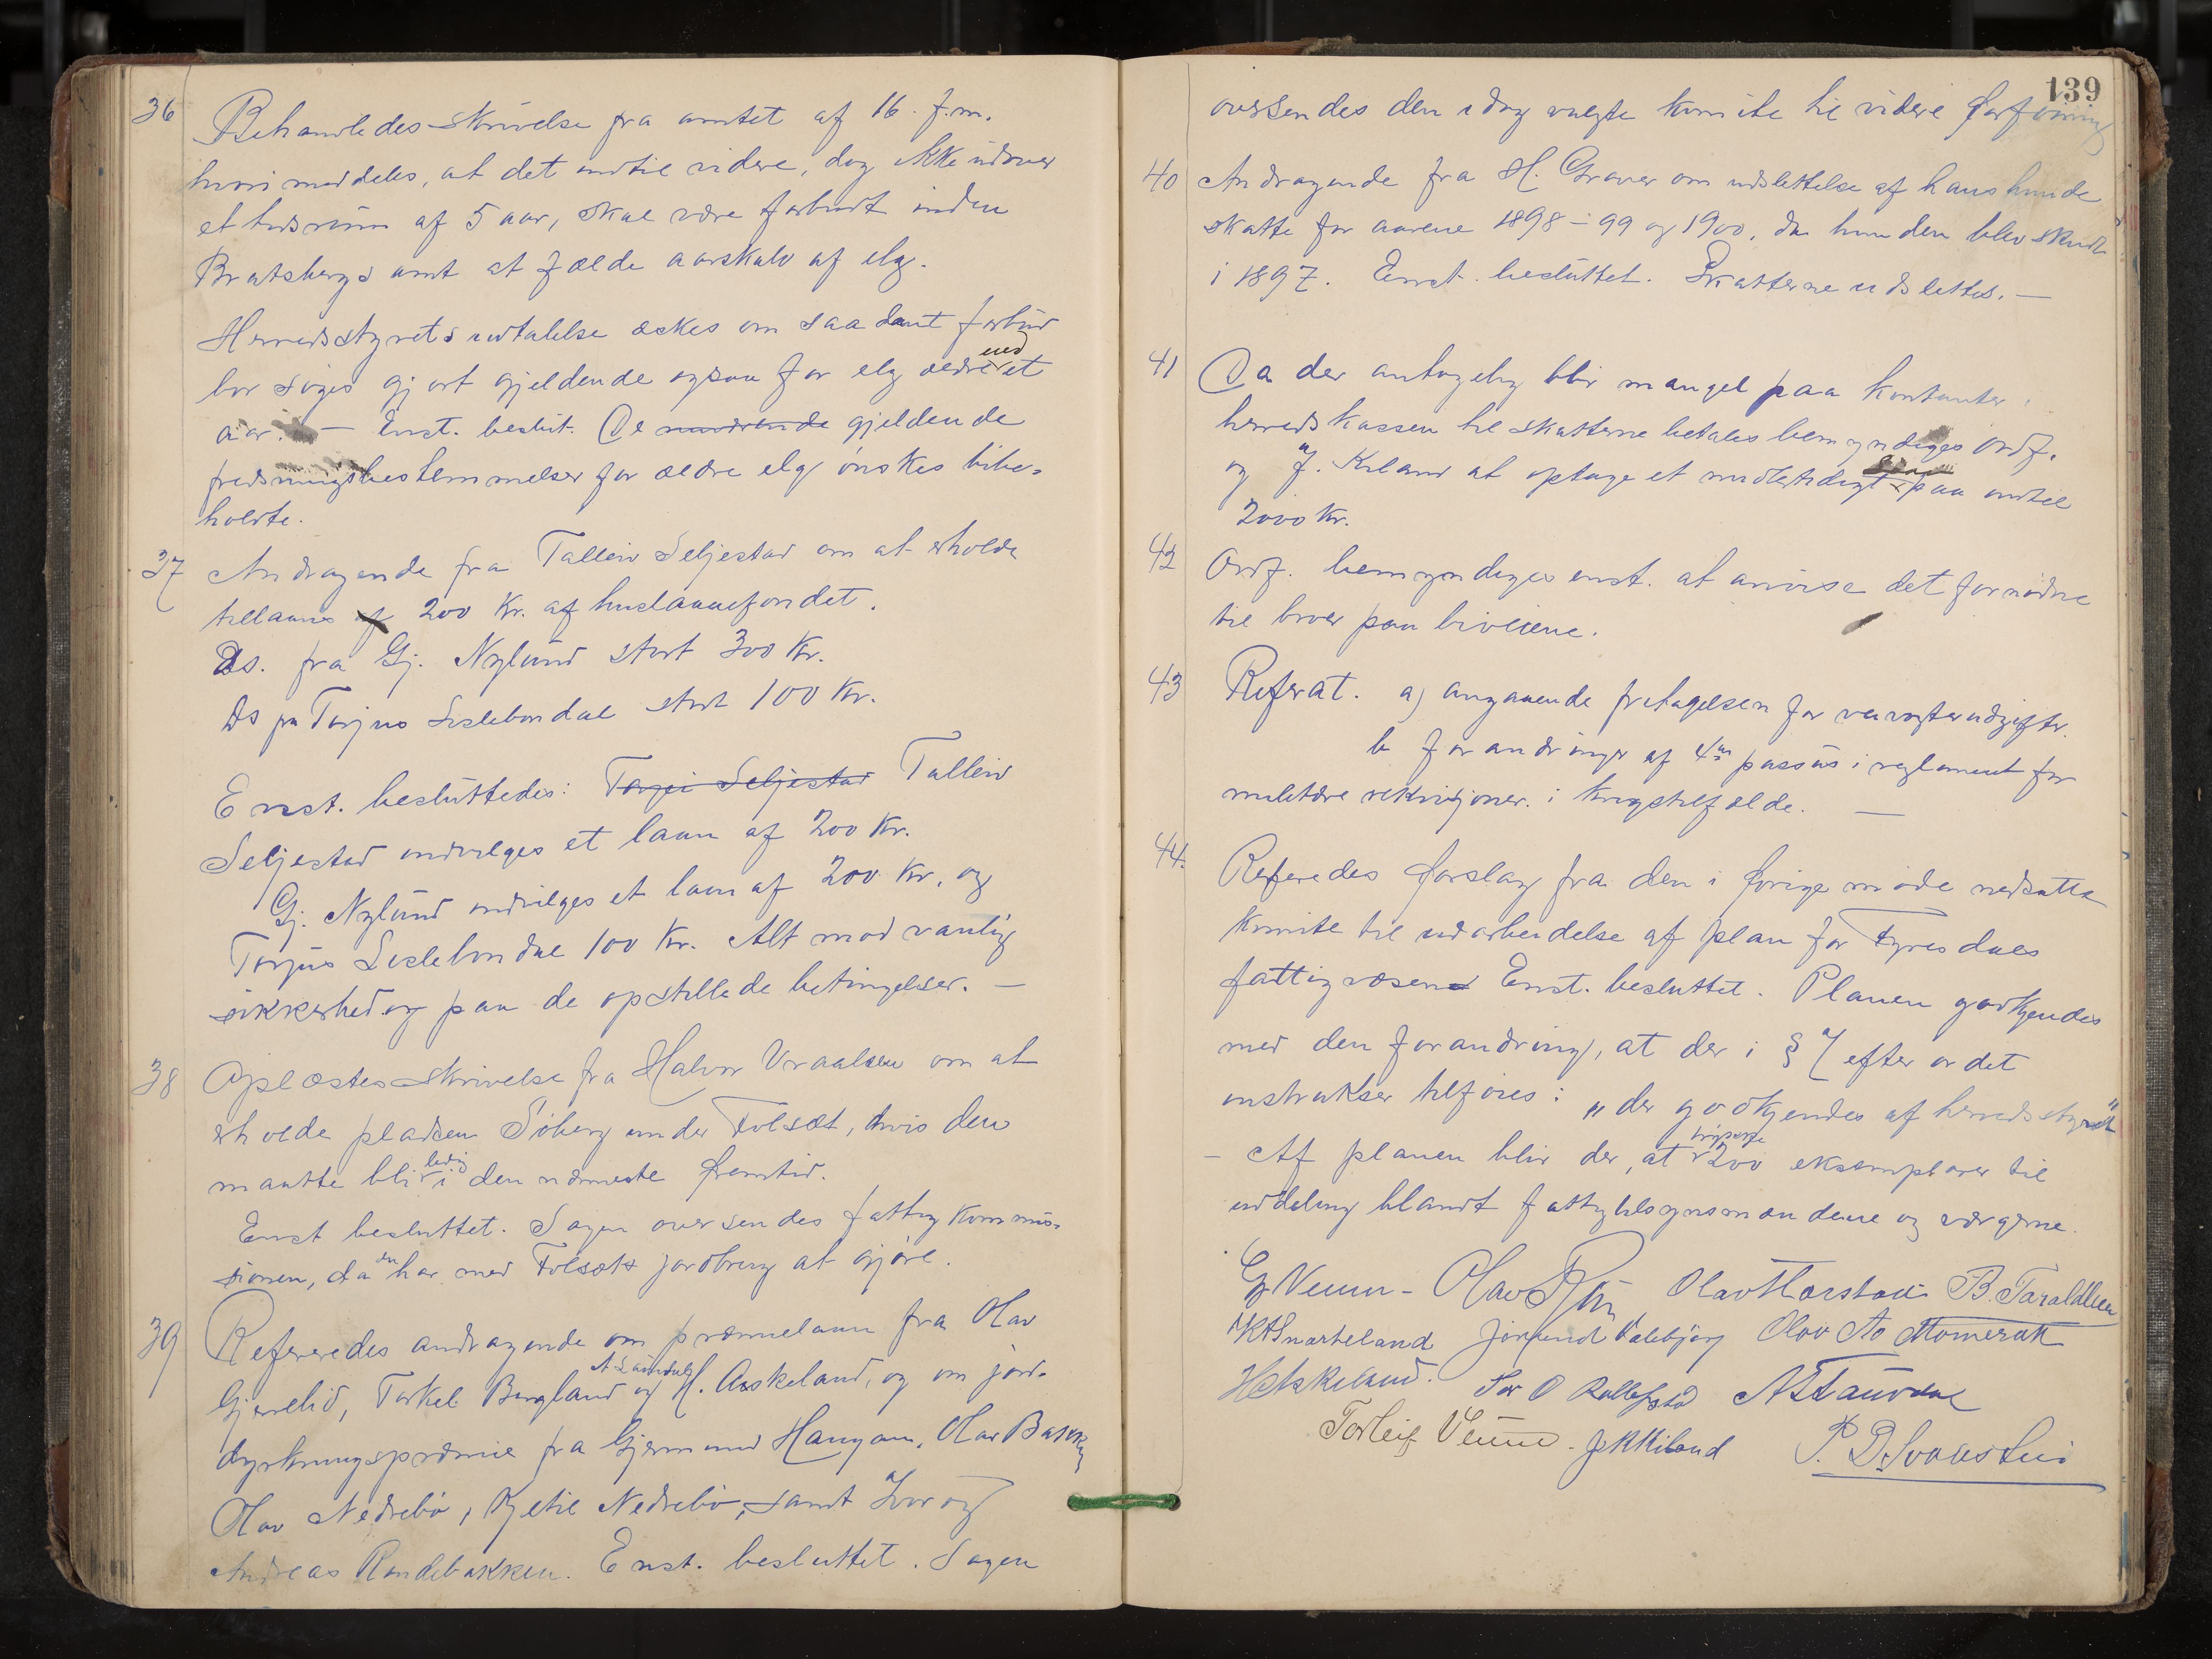 36 Behandledes skrivelse fra amtet af 16. f.m.
hvori meddeles, at det indtil videre, dog ikke udover
et tidsrum af 5 aar, skal være forbudt inden
Bratsbergs amt at fælde aarskalv af elg.
Herredsstyrets udtalelse æskes om saadant forbud
bør søges gjort gjeldende ogsaa for elg ældre end et
aar. — Enst. beslut. De nuværende gjeldende
fredningsbestemmelser for ældre elg ønskes bibe-
holdte.
37 Andragende fra Talleiv Seljestad om at erholde
tillaans af 200 Kr. af huslaanefondet.
Ds. fra Gj. Nylund stort 300 Kr.
Ds fra Torjus Lislebondal stort 100 Kr.
Enst. besluttedes: Torjei Seljestad Talleiv
Seljestad indvilges et laan af 200 Kr.
Gj. Nylund indvilges et laan af 200 Kr. og
Torjus Lislebondal 100 Kr. Alt mod vanlig
sikkerhed og paa de opstillede betingelser. —
38 Oplæstes skrivelse fra Halvor Vraalsen om at
erholde pladsen Söberg under Folsæt, hvis den
maatte bli ledig i den nærmeste fremtid.
Enst besluttet. Sagen oversendes fattigkommis-
sionen, da den har med Folsæts jordbrug at gjöre.
39 Refereredes andragende om præmielaan fra Olav
Gjerrelid, Torkel Bergland A. Laundal og H. Askeland, og om jord-
dyrkningspræmie fra Gjermund Haugan, Olav Bakken
Olav Nedrebö, Kjetil Nedrebö, samt Ivar og
Andreas Randebakken. Enst. besluttet. Sagen
139
oversendes den idag valgte komite til videre forföining
40 Andragende fra H. Graver om udslettelse af hans hunde
skatte for aarene 1898 – 99 og 1900, da hunden blev skudt
i 1897. Enst. besluttet. Skatterne udslettes. —
41 Da der antagelig blir mangel paa kontanter i
herredskassen til skatterne betales bemyndiges Ordf.
og J. Kiland at optage et midlertidigt laan paa indtil
2000 Kr.
42 Ordf. bemyndiges enst. at anvise det fornødne
til broer paa biveiene.
43 Referat. a) angaaende fritagelsen for veivogterudgifter.
b forandringer af 4de passus i reglement for
militære rekvisjoner i krigstilfælde. —
44. Referedes forslag fra den i forrige møde nedsatte
komite til udarbeidelse af plan for Fyresdals
fattigvæsen Enst. besluttet. Planen godkjendes
med den forandring, at der i § 7 efter ordet
instrukser tilføies: „der godkjendes af herredsstyret"
– Af planen blir der, at trykke 200 eksemplarer til
uddeling blandt fattigtilsynsmændene og værgerne.
G Veum – Olav Olav Harstad B. Taraldlien
Snarteland Jörund Valebjörg Olav Ao Momrak
H Askeland. Tor O Rollefstad A Laundal
Torleif Veum. J K Kiland P. D. Sveastui